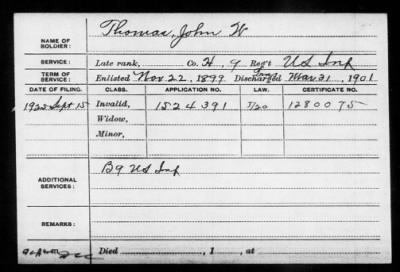 NAME OF SOLDIER: Thomas, John W
SERVICE: Late rank, Co. H, 9 Reg't US Inf
TERM OF SERVICE: Enlisted Nov. 22, 1899 Discharged Mar. 21, 1901
DATE OF FILING. CLASS. APPLICATION NO. LAW. CERTIFICATE NO.
1922 Sept 15 Invalid, 1524391 1280075
Widow,
Minor,
ADDITIONAL SERVICES: B 9 US Inf
REMARKS:
Died , 1 , at